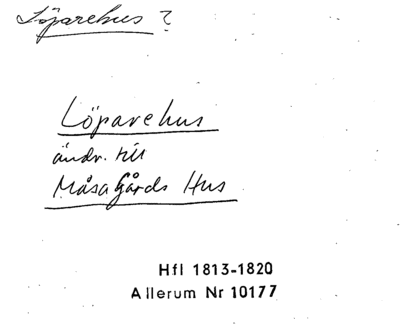 Löparehus ?
Löparehus
ändr. till
MåsaGårds Hus
Hfl 1813-1820
Allerum Nr 10177